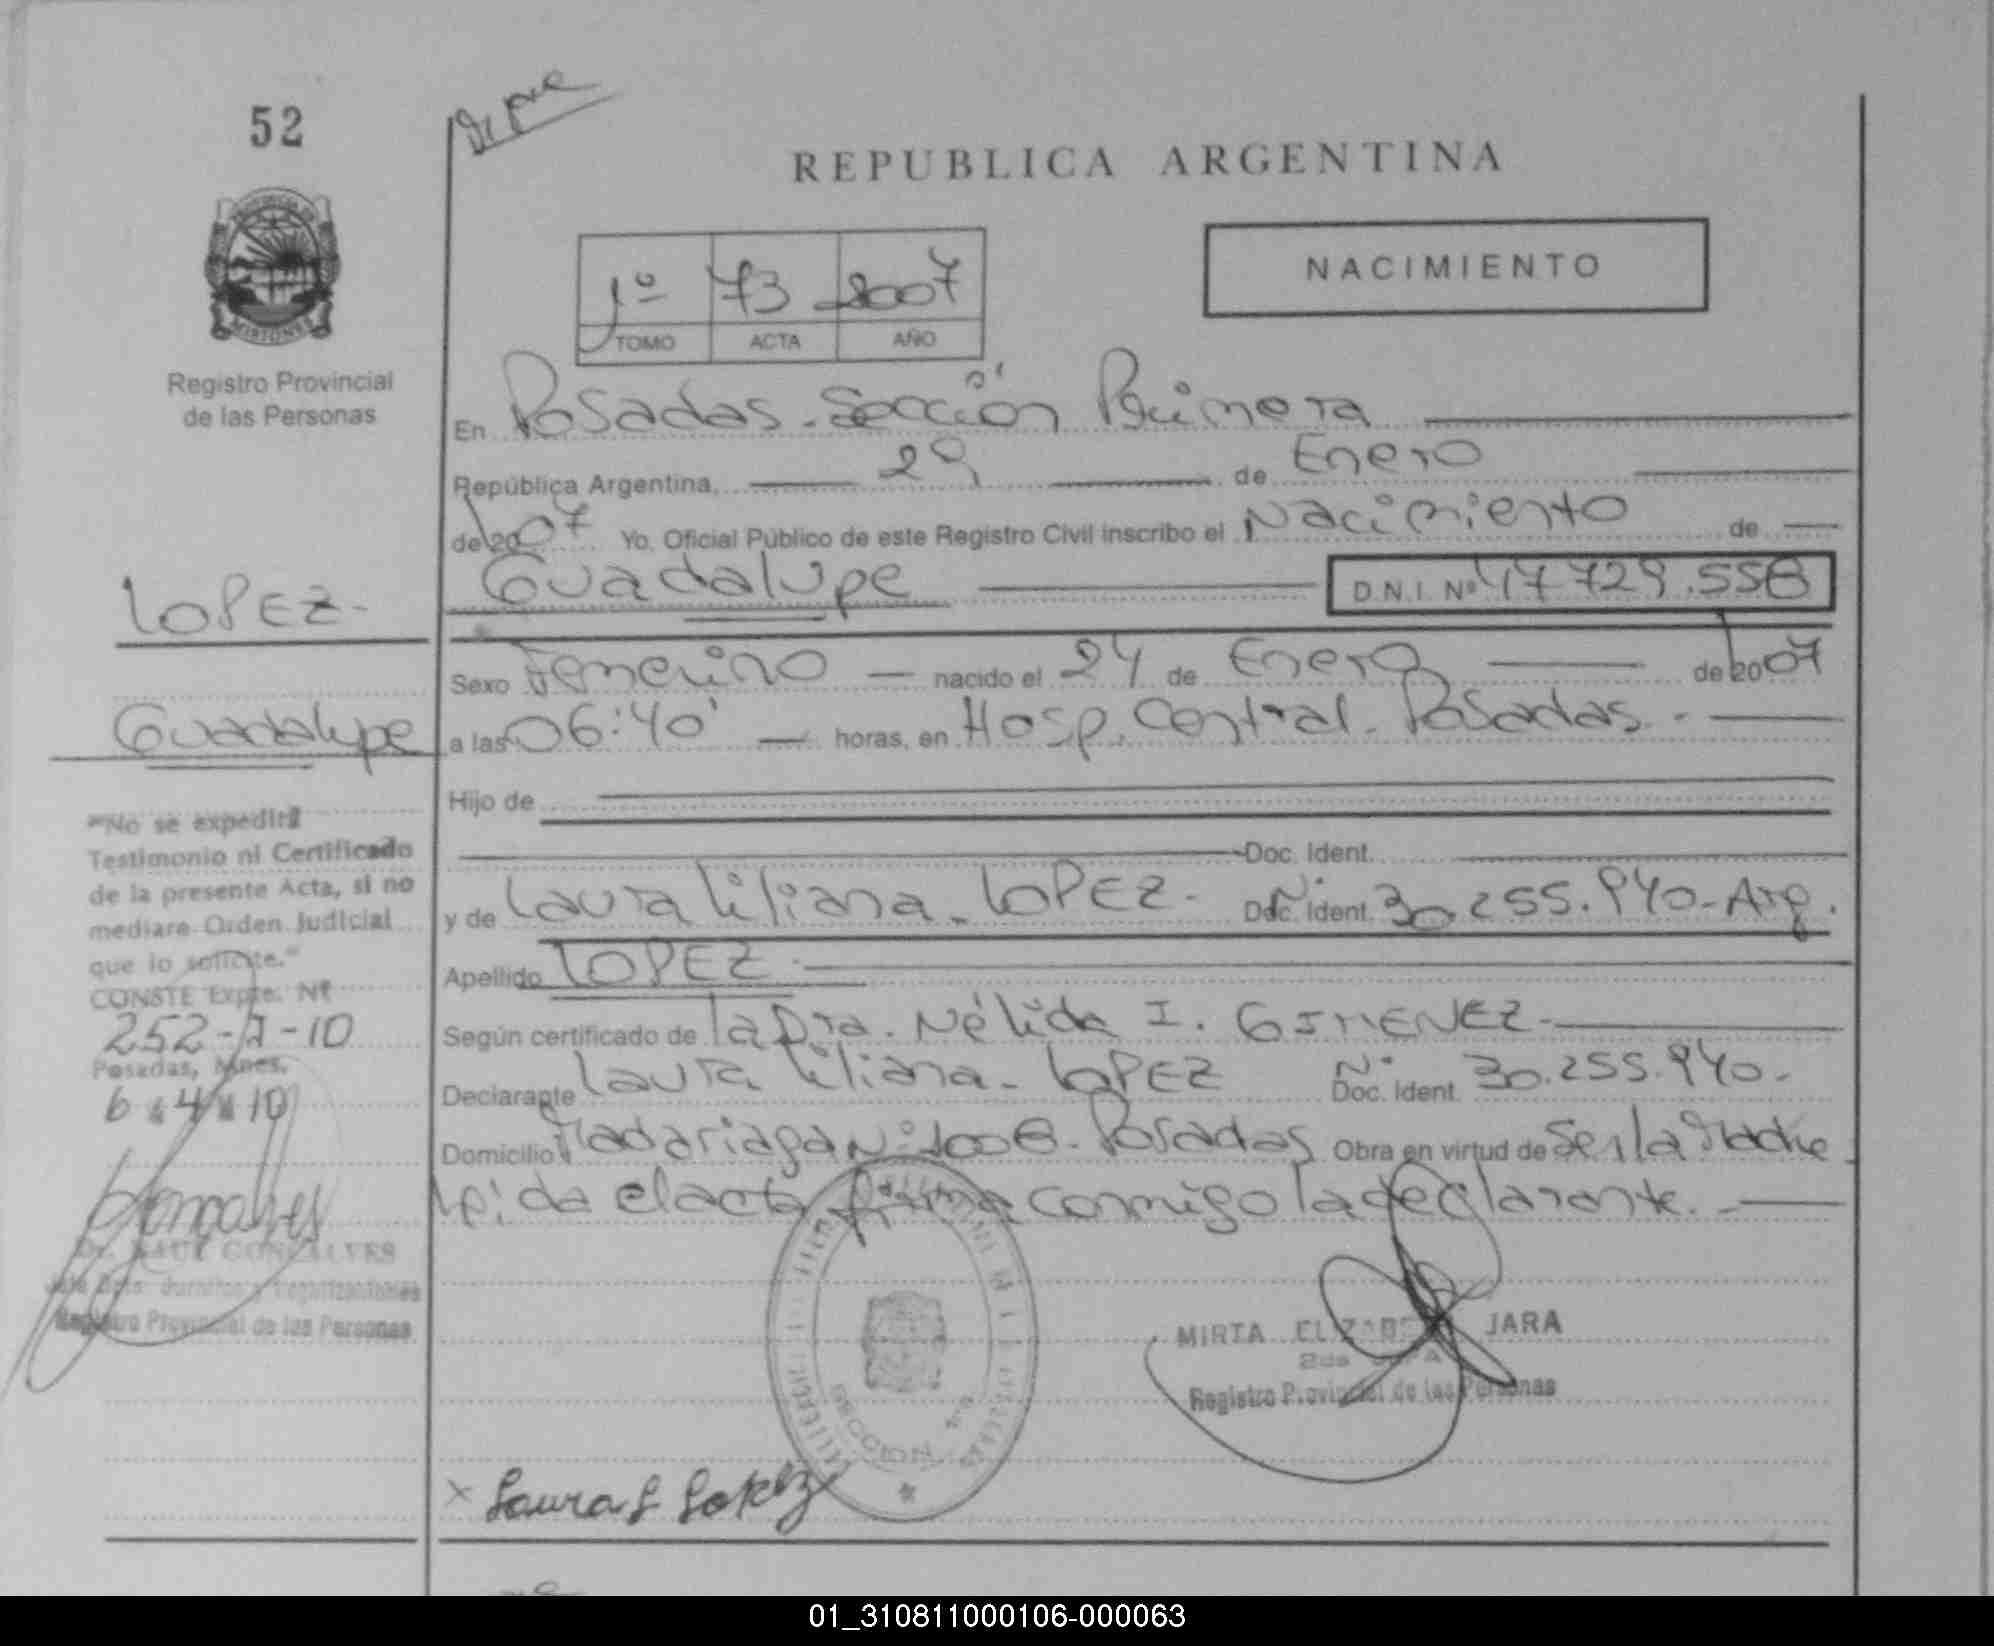 52
REPUBLICA ARGENTINA
NACIMIENTO
1º 73 2007
TOMO ACTA AÑO
PROVINCIA DE
MISIONES
Registro Provincial
de las Personas
En Posadas. Sección Primera
República Argentina, 29 de Enero
de 2007 Yo, Oficial Público de este Registro Civil inscribo el Nacimiento de
Guadalupe D.N.I. Nº 47 729.558
LOPEZ-
Guadalupe
Sexo Femenino nacido el 24 de Enero de 2007
a las 06:40' horas, en Hosp. Central. Posadas.-
Hijo de
Doc. Ident.
y de Laura Liliana. LOPEZ- Doc. Ident. Nº 30.255.940-Arg.
Apellido LOPEZ.-
Según certificado de la Dra. Nélida I. GIMENEZ-
Declarante Laura Liliana. LOPEZ Doc. Ident. Nº 30.255.940.-
Domicilio Madariaga Nº 1008. Posadas Obra en virtud de ser la Madre
Leida el acta firma conmigo la declarante.-
"No se expedirá
Testimonio ni Certificado
de la presente Acta, si no
mediare Orden Judicial
que lo solicite."
CONSTE Expte. Nº
252- -10
Posadas, Mnes.
6 4 10
Dr. RAUL GONZALVES
Registro Provincial de las Personas
MIRTA ELIZABETH JARA
2da JEFA
Registro Provincial de las Personas
SECCION
x Laura L Lopez
01_310811000106-000063